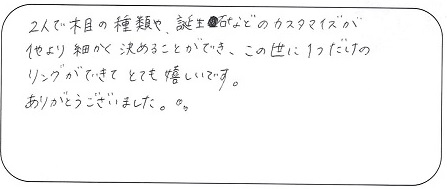 2人で木目の種類や、誕生石などのカスタマイズが
他より細かく決めることができ、この世に1つだけの
リングができてとても嬉しいです。
ありがとうございました。